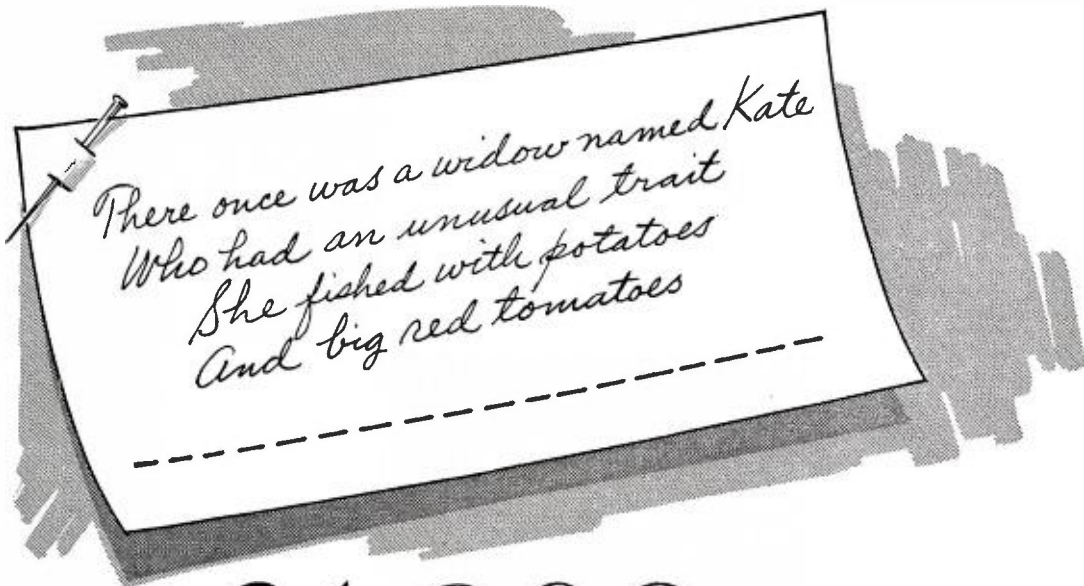 There once was a widow named Kate
Who had an unusual trait
She fished with potatoes
And big red tomatoes